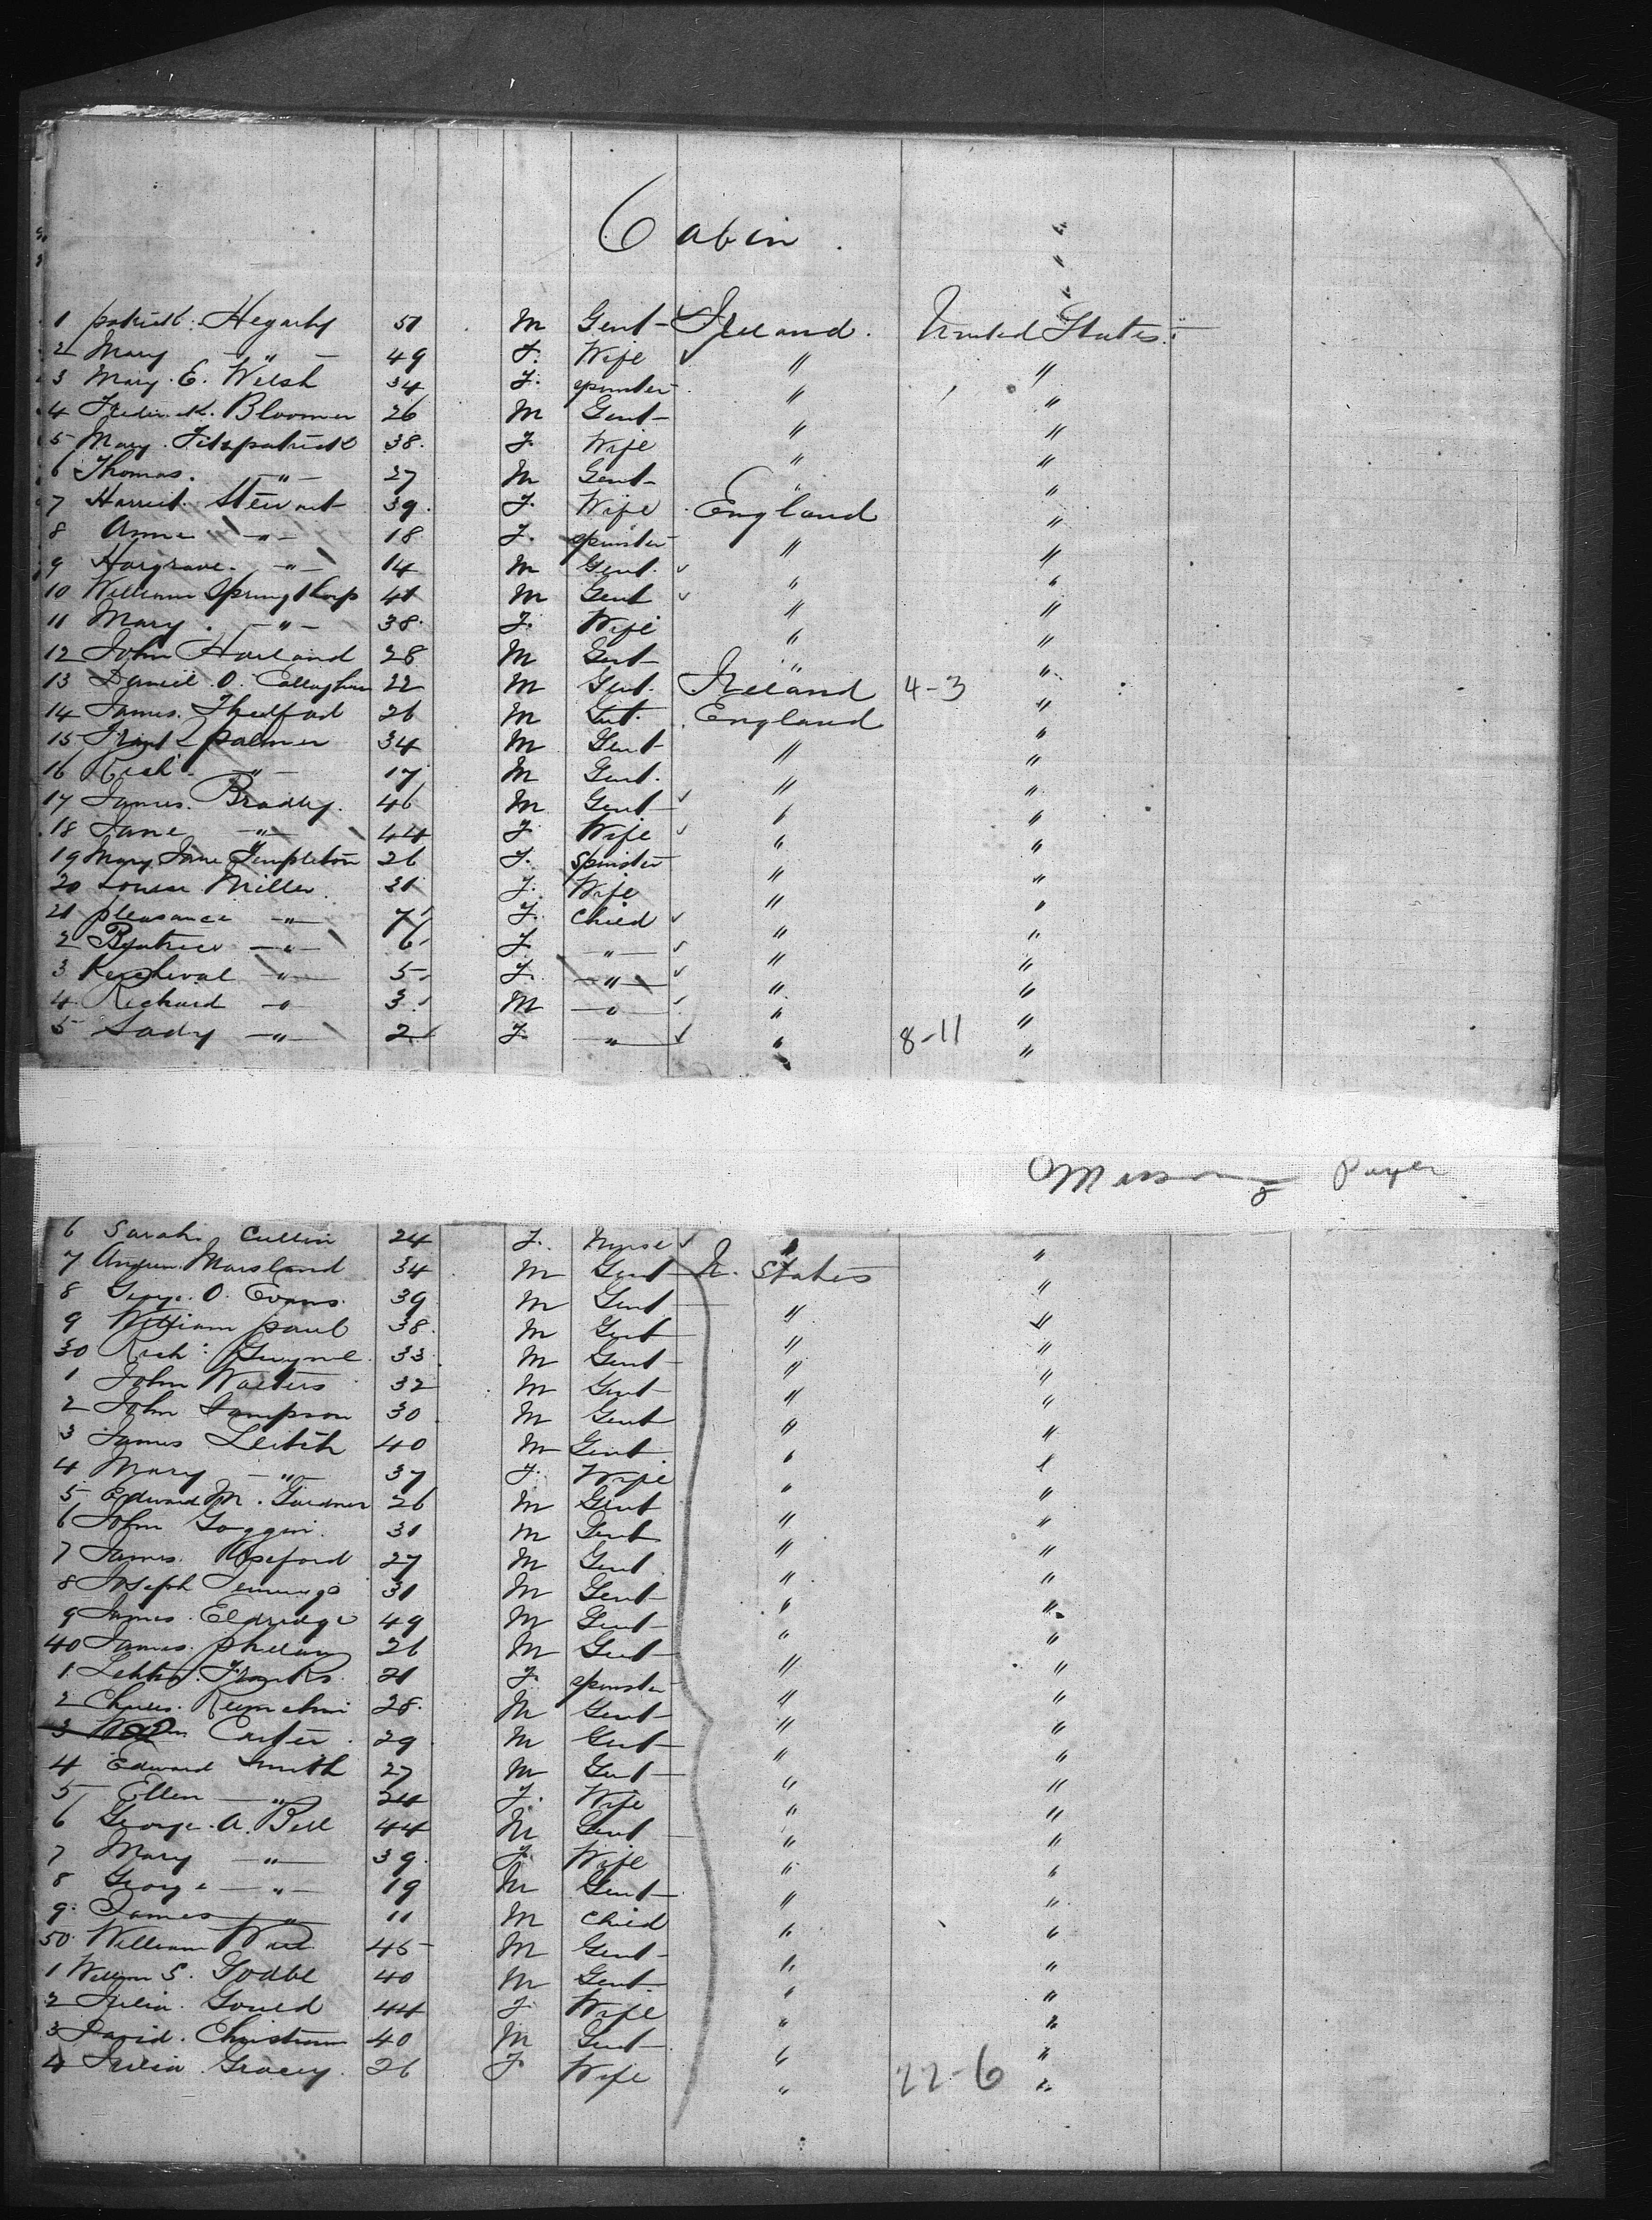 Cabin
1 patrick Hegarty 51 M Gent Ireland United States
2 Mary " 49 F. Wife " "
3 Mary E. Welsh 34 F. spinster " "
4 Frederick Bloomer 26 M Gent " "
5 Mary Fitzpatrick 38 F. Wife " "
6 Thomas " 27 M Gent " "
7 Harriet Stewart 39 F. Wife England "
8 Anna " 18 F. spinster " "
9 Hargrave " 14 M Gent " "
10 William Springthorp 41 M Gent " "
11 Mary " 38 F. Wife " "
12 John Harland 28 M Gent " "
13 Daniel O. Callaghan 22 M Gent Ireland 4-3 "
14 James 26 M Gent England "
15 Palmer 34 M Gent " "
16 Rich " 17 M Gent " "
17 James Bradley 46 M Gent " "
18 Jane " 44 F. Wife " "
19 Mary Jane Templeton 26 F. Spinster " "
20 Louisa Miller 31 F. Wife " "
21 pleasance " 7 F. Child " "
2 Beatrice " 6 F. " " "
3 " 5 F. " " "
4 Richard " 3 M " " "
5 Lady " 2 F. " " 8-11 "
Missing Paper
6 Sarah Cullin 24 F. Nurse " "
7 Andrew Marsland 34 M Gent U. States "
8 George O. Evans 39 M Gent " "
9 William paul 38 M Gent " "
30 Rich Gwynne 33 M Gent " "
1 John Walters 32 M Gent " "
2 John Sampson 30 M Gent " "
3 James Leitch 40 M Gent " "
4 Mary " 37 F. Wife " "
5 Edward M. Gardner 26 M Gent " "
6 John Goggin 31 M Gent " "
7 James 27 M Gent " "
8 Joseph Jennings 31 M Gent " "
9 James Eldridge 49 M Gent " "
40 James phelan 26 M Gent " "
1 Franks 21 F. spinster " "
2 Charles 28 M Gent " "
3 Carter 29 M Gent " "
4 Edward Smith 27 M Gent " "
5 Ellen " 24 F. Wife " "
6 George A. Bell 44 M Gent " "
7 Mary " 39 F. Wife " "
8 George " 19 M Gent " "
9 James " 11 M Child " "
50 William 45 M Gent " "
1 William S. Godbe 40 M Gent " "
2 Julia Gould 44 F. Wife " "
3 David 40 M Gent " "
4 Julia Gracey 26 F. Wife " 22-6 "